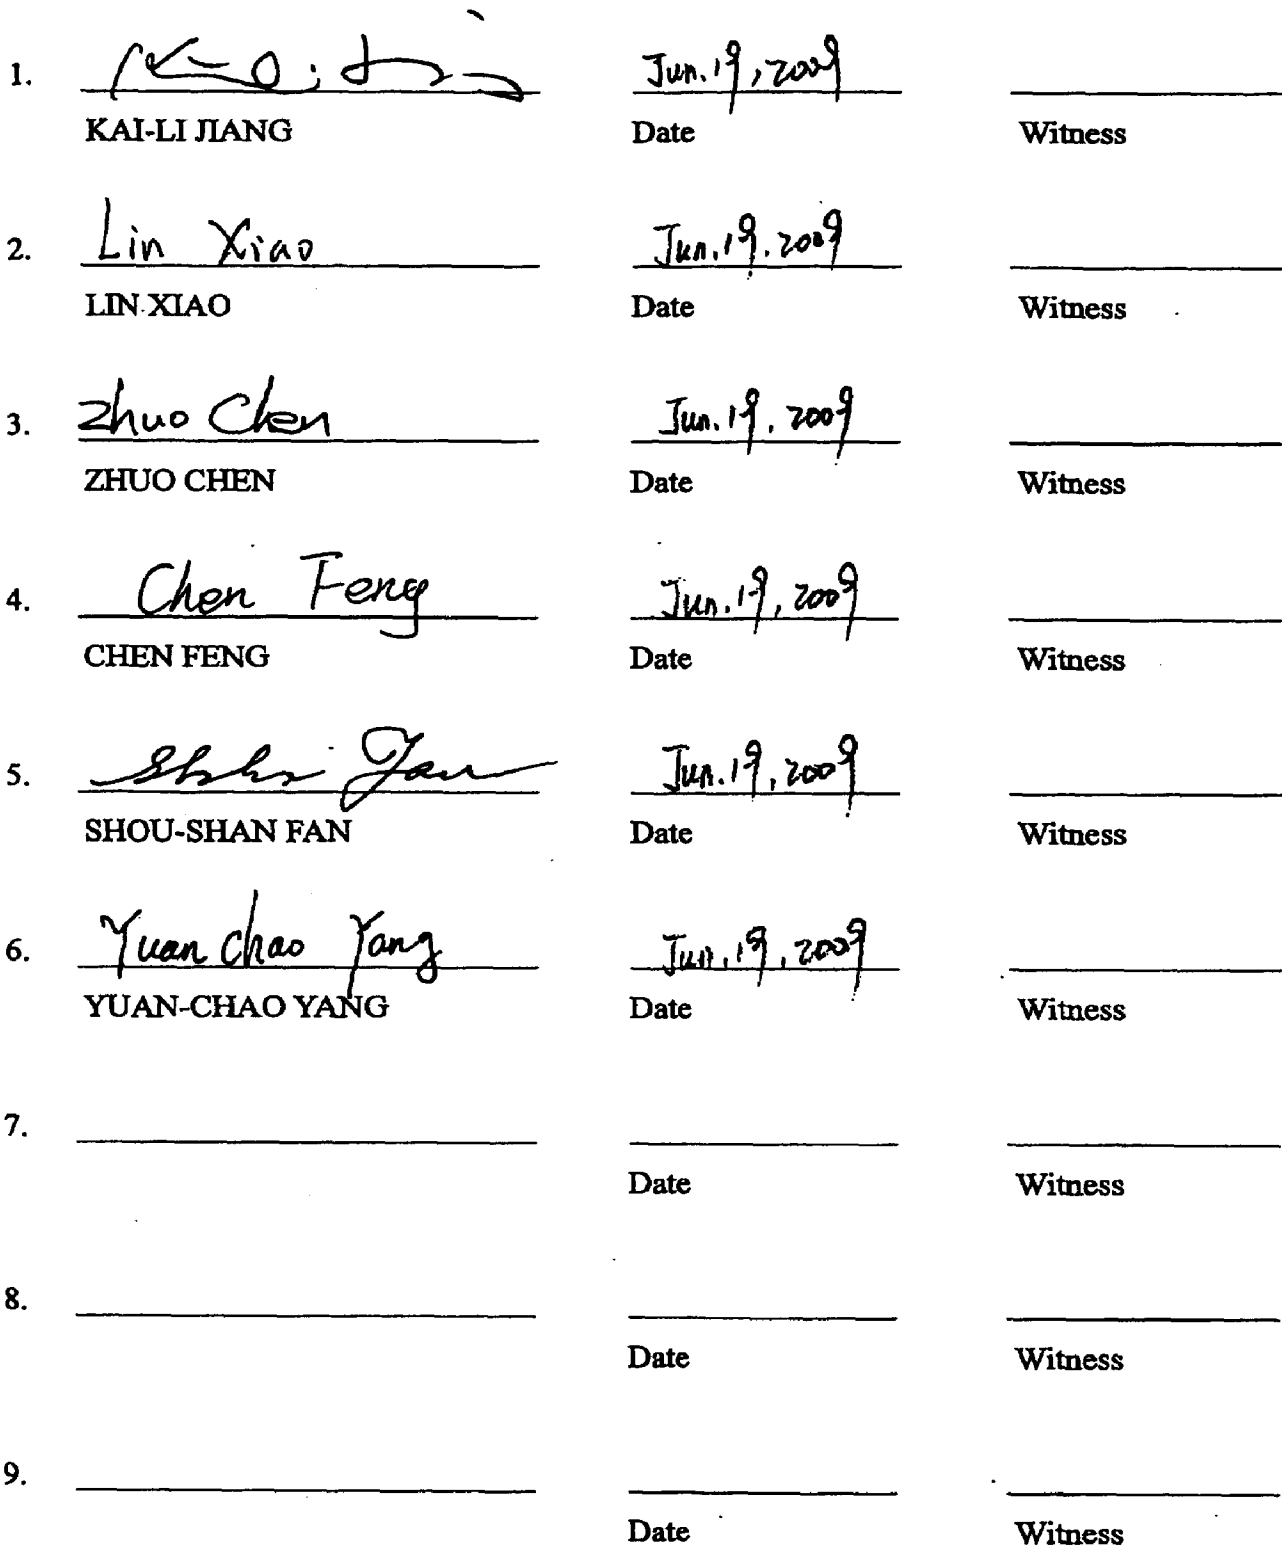 1. Jun. 19, 2009
KAI-LI JIANG Date Witness
2. Lin Xiao Jun. 19. 2009
LIN XIAO Date Witness
3. Zhuo Chen Jun. 19, 2009
ZHUO CHEN Date Witness
4. Chen Feng Jun. 19, 2009
CHEN FENG Date Witness
5. Jun. 19, 2009
SHOU-SHAN FAN Date Witness
6. Yuan chao Yang Jun. 19, 2009
YUAN-CHAO YANG Date Witness
7.
Date Witness
8.
Date Witness
9.
Date Witness